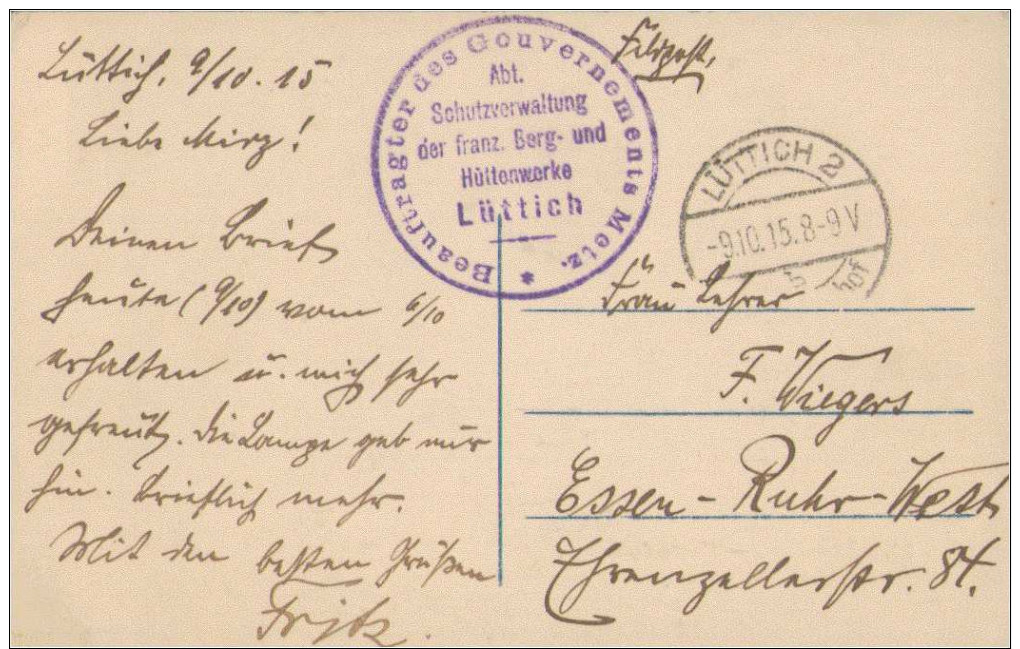 Lüttich, 9/10.15
Liebe Mirz!
Deinen Brief
heute (9/10) vom 6/10
erhalten u. mich sehr
gefreut. Die Lampe geb nur
hin. Brieflich mehr.
Mit den besten Grüßen
Fritz.
Beauftragter des Gouvernements Metz. *
Abt.
Schutzverwaltung
der franz. Berg- und
Hüttenwerke
Lüttich
Feldpost,
LÜTTICH 2
-9.10.15.8-9V
hof
Frau Lehrer
F. Wiegers
Essen-Ruhr-West
Ehrenzellerstr. 84.